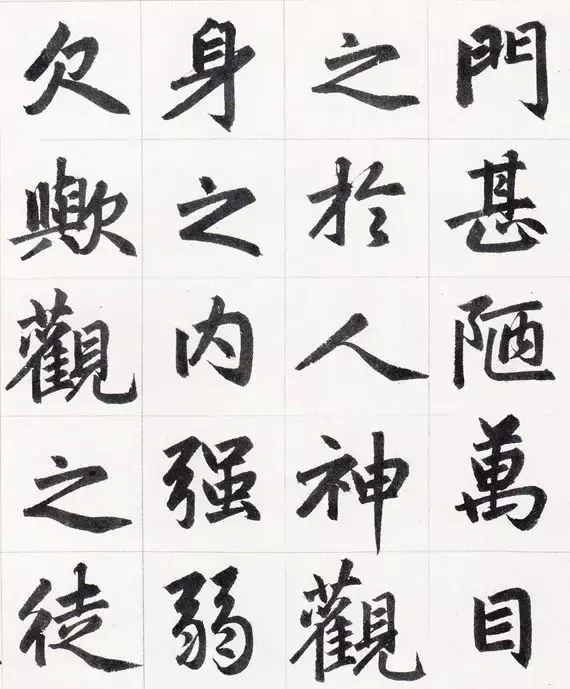 門甚陋萬目
之於人神觀
身之内强弱
欠歟觀之徒